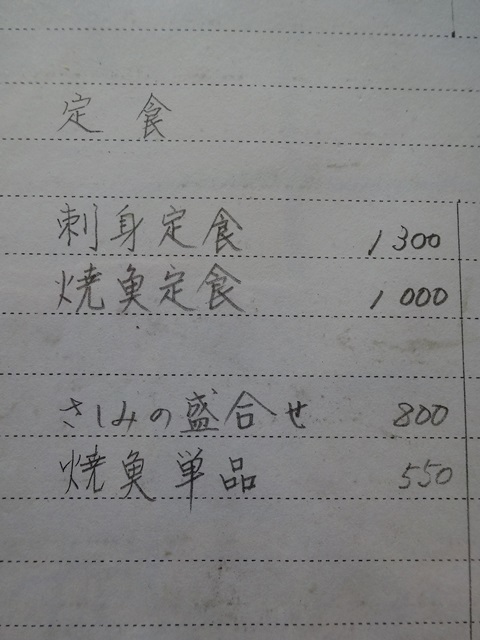 定食
刺身定食 1300
焼魚定食 1000
さしみの盛合せ 800
焼魚単品 550